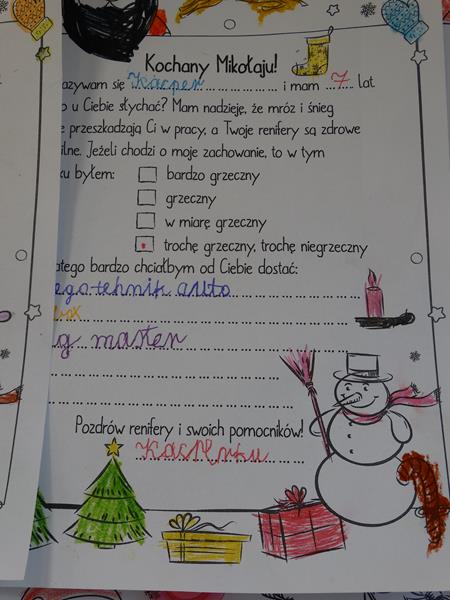 Kochany Mikołaju!
azywam się Kacper i mam 7 lat
o u Ciebie słychać? Mam nadzieję, że mróz i śnieg
e przeszkadzają Ci w pracy, a Twoje renifery są zdrowe
ilne. Jeżeli chodzi o moje zachowanie, to w tym
ku byłem:
bardzo grzeczny
grzeczny
w miarę grzeczny
trochę grzeczny, trochę niegrzeczny
atego bardzo chciałbym od Ciebie dostać:
egotehnik auto
g master
Pozdrów renifery i swoich pomocników!